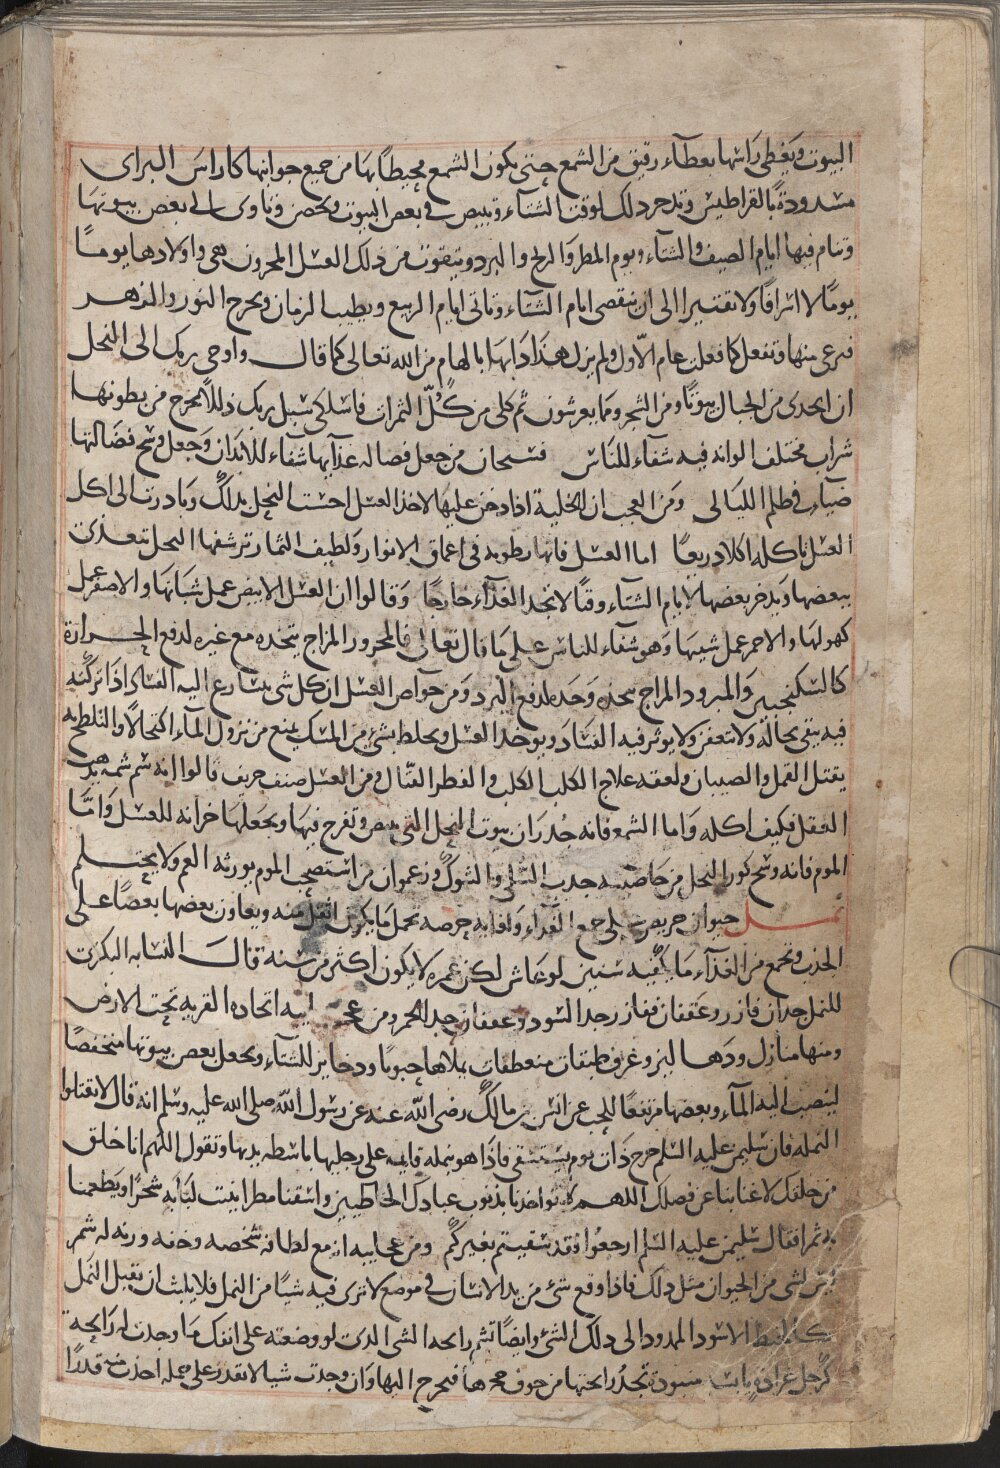 البيوت ويغطي راسها بغطآء رقيق من الشمع حتى يكون الشمع محيطا بها من جميع جوانبها كاراس البراى
مشدودة بالقراطيس وتدخر ذلك لوقت الشتاء وتبيض فى بعض البيوت وتحضن وتاوى الى بعض بيوتها
وتنام فيها ايام الصيف والشتاء ويوم المطر والريح والبرد وتتقوت من ذلك العسل المخزون هى واولادها يوما
يوما لا اسرافا ولا تقتيرا الى ان تنقضى ايام الشتاء وتاتى ايام الربيع ويطيب الزمان ويخرج النور والزهر
فترعى منها وتفعل كما فعلت عام الاول ولم يزل هذا دابها بالهام من الله تعالى كما قال واوحى ربك الى النحل
ان اتخذى من الجبال بيوتا ومن الشجر ومما يعرشون ثم كلى من كل الثمرات فاسلكى سبل ربك ذللا يخرج من بطونها
شراب مختلف الوانه فيه شفاء للناس فسبحان من جعل فضالة غذآيها شفاء للابدان وجعل وسخ فضالتها
ضيآء فى ظلم الليالى ومن العجب ان الخلية اذا دخن عليها لاخذ العسل احست النحل بذلك وبادرت الى اكل
العسل تاكله اكلا ذريعا اما العسل فانها رطوبة فى اعماق الانوار ولطيف الثمار ترشفها النحل تتغذى
ببعضها ويدخر بعضها لايام الشتاء وقتا لا تجد الغذآء خارجا وقالوا ان العسل الابيض عمل شبانها والاصفر عمل
كهولها والاحمر عمل شيبها وهو شفاء للناس على ما قال تعالى فالمحرور المزاج يتخذه مع غيره لدفع الحرارة
كالسكنجبين والمبرود المزاج يتخذه وحده لدفع البرد ومن خواص العسل ان كل شى يتسارع اليه الفساد اذا تركته
فيه يبقى بحاله ولا يتعفن ولا يوثر فيه الفساد ويوخذ العسل ويخلط بشئ من المسك يمنع من نزول المآء اكتحالا والتلطخ به
يقتل القمل والصيبان ولعقه علاج الكلب الكلب والفطر القتال ومن العسل صنف حريف قالوا انه سم شمه يذهب
العقل فكيف اكله واما الشمع فانه جدران بيوت النحل التى تبيض وتفرخ فيها ويجعلها خزانة للعسل واما
الموم فانه وسخ كور النحل من خاصيته جذب السلى والشوك وزعموا ان من استصحب الموم يورثه الغم ولا يحتلم
نمل حيوان حريص على جمع الغذاء وافاته حرصه تحمل ما يكون اثقل منه ويعاون بعضها بعضا على
الجذب وتجمع من الغذآء ما يكفيه سنين لو عاش لكن عمره لا يكون اكثر من سنة قال النسابه البكرى
للنمل جدان فازر وعقفان ففازر جد السود وعقفان جد الحمر ومن عجايبه اتخاذه القرية تحت الارض
ومنها منازل ودهاليز وغرف طبقات منعطفات يملاها حبوبا وذخاير للشتاء ويجعل بعض بيوتها منخفضا
لينصب اليه المآء وبعضها مرتفعا للحب عن انس بن مالك رضى الله عنه عن رسول الله صلى الله عليه وسلم انه قال لا تقتلوا
النملة فان سليمن عليه السلم خرج ذات يوم يستسقى فاذا هو بنملة قايمة على رجليها باسطة يديها وتقول اللهم انا خلق
من خلقك لا غنا بنا عن فضلك اللهم لا تواخذنا بذنوب عبادك الخاطيين واسقنا مطرا ينبت لنا به شجرا ويطعمنا
به ثمرا فقال سليمن عليه السلم ارجعوا فقد سقيتم بغيركم ومن عجايبه انه مع لطافة شخصه وخفة وزنه له شم
ليس لشى من الحيوان مثل ذلك فاذا وقع شئ من يد الانسان فى موضع لا ترى فيه شيا من النمل فلا يلبث ان يقبل النمل
كالخيط الاسود الممدود الى ذلك الشئ وايضا تشم رايحة الشى الذى لو وضعته على انفك ما وجدت له رايحة
كرجل جرادة يابسة منبوذة تجد رايحتها من جوف جحرها فتخرج اليها وان وجدت شيا لا تقدر على حمله اخذت منه قدرا